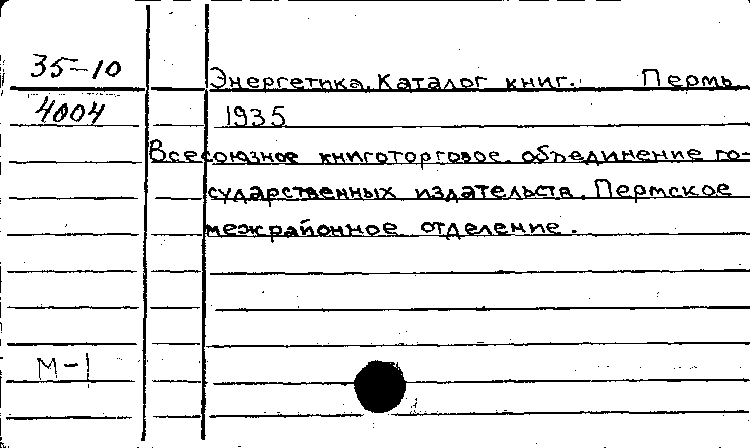 35-10
Энергетика. Каталог книг. Пермь
4004
1935
Всесоюзное книготорговое объединение го-
сударственных издательств. Пермское
межрайонное отделение.
М-1